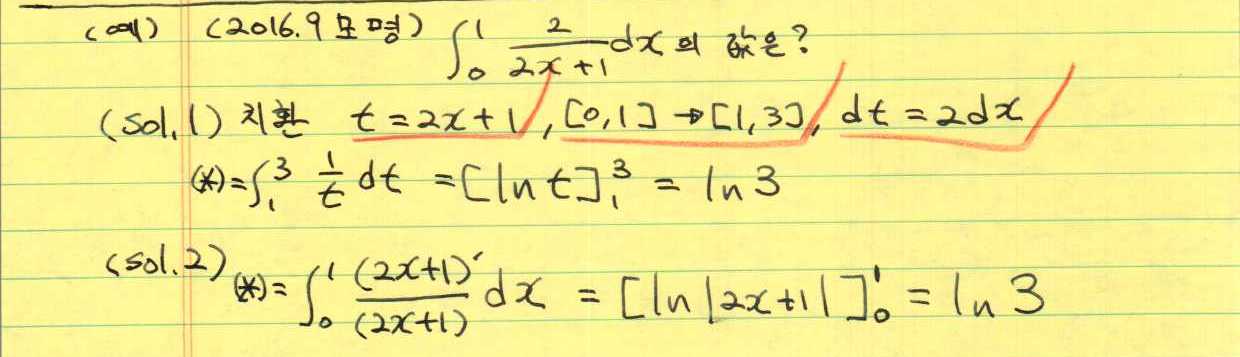 (예) (2016.9 모평) ∫₀¹ 2/(2x+1) dx 의 값은?
(sol.1) 치환 t=2x+1, [0,1]→[1,3], dt=2dx
(*)=∫₁³ 1/t dt =[ln t]₁³ = ln3
(sol.2) (*)=∫₀¹ (2x+1)′/(2x+1) dx = [ln|2x+1|]₀¹ = ln3